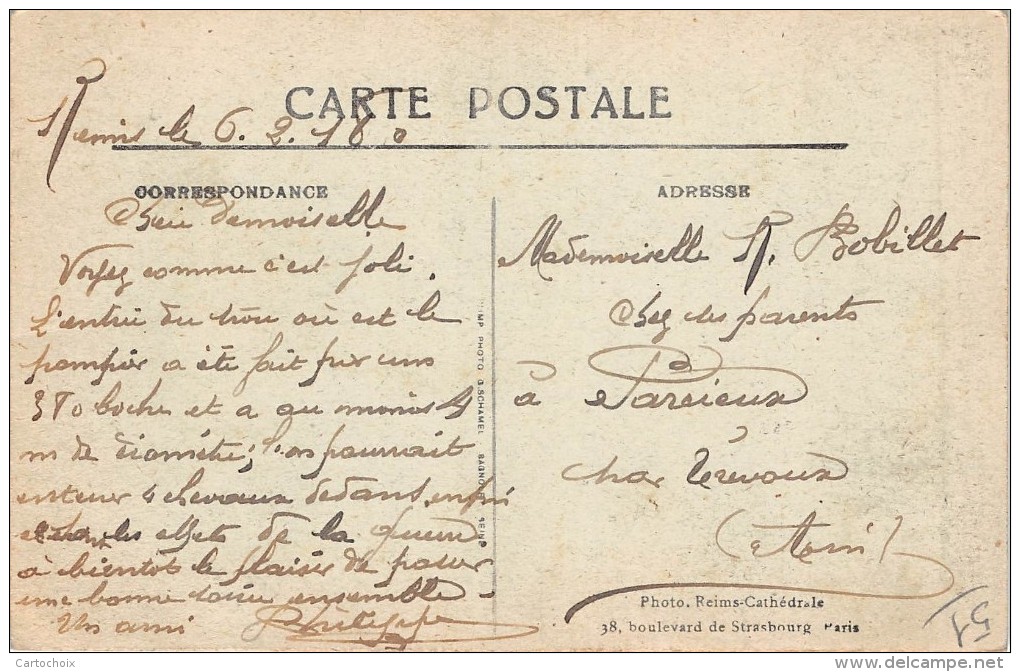 CARTE POSTALE
Reims le 6.2.18
CORRESPONDANCE
ADRESSE
Chère Demoiselle
Voyez comme c'est joli.
L'entrée du trou où est le
pompier a été fait par un
370 boche et a au moins 4
m de diamètre; l'on pourrait
enterrer 4 chevaux dedans, enfin
les effets de la guerre
à bientôt le plaisir de passer
une bonne soirée ensemble
Un ami Philippe
Mademoiselle R. Robillet
chez ses parents
à Parcieux
par Trévoux
(Ain)
IMP PHOTO G. SCHAMEL BAGNOLET SEINE
Photo. Reims-Cathédrale
38, boulevard de Strasbourg Paris
51
© Cartochoix
delcampe.net